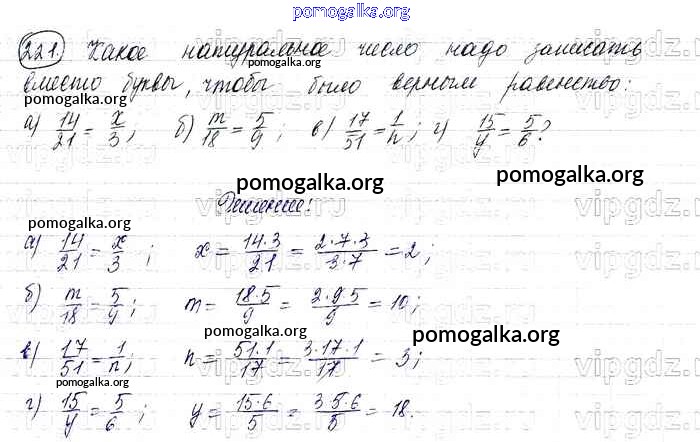 pomogalka.org
221. Какое натуральное число надо записать
pomogalka.org
вместо буквы, чтобы было верным равенство:
pomogalka.org
а) 14/21 = x/3; б) m/18 = 5/9; в) 17/51 = 1/n; г) 15/y = 5/6?
pomogalka.org
pomogalka.org
Решение:
pomogalka.org
а) 14/21 = x/3; x = 14·3/21 = 2·7·3/3·7 = 2;
б) m/18 = 5/9; m = 18·5/9 = 2·9·5/9 = 10;
pomogalka.org
pomogalka.org
в) 17/51 = 1/n; n = 51·1/17 = 3·17·1/17 = 3;
pomogalka.org
г) 15/y = 5/6; y = 15·6/5 = 3·5·6/5 = 18.
vipgdz.ru